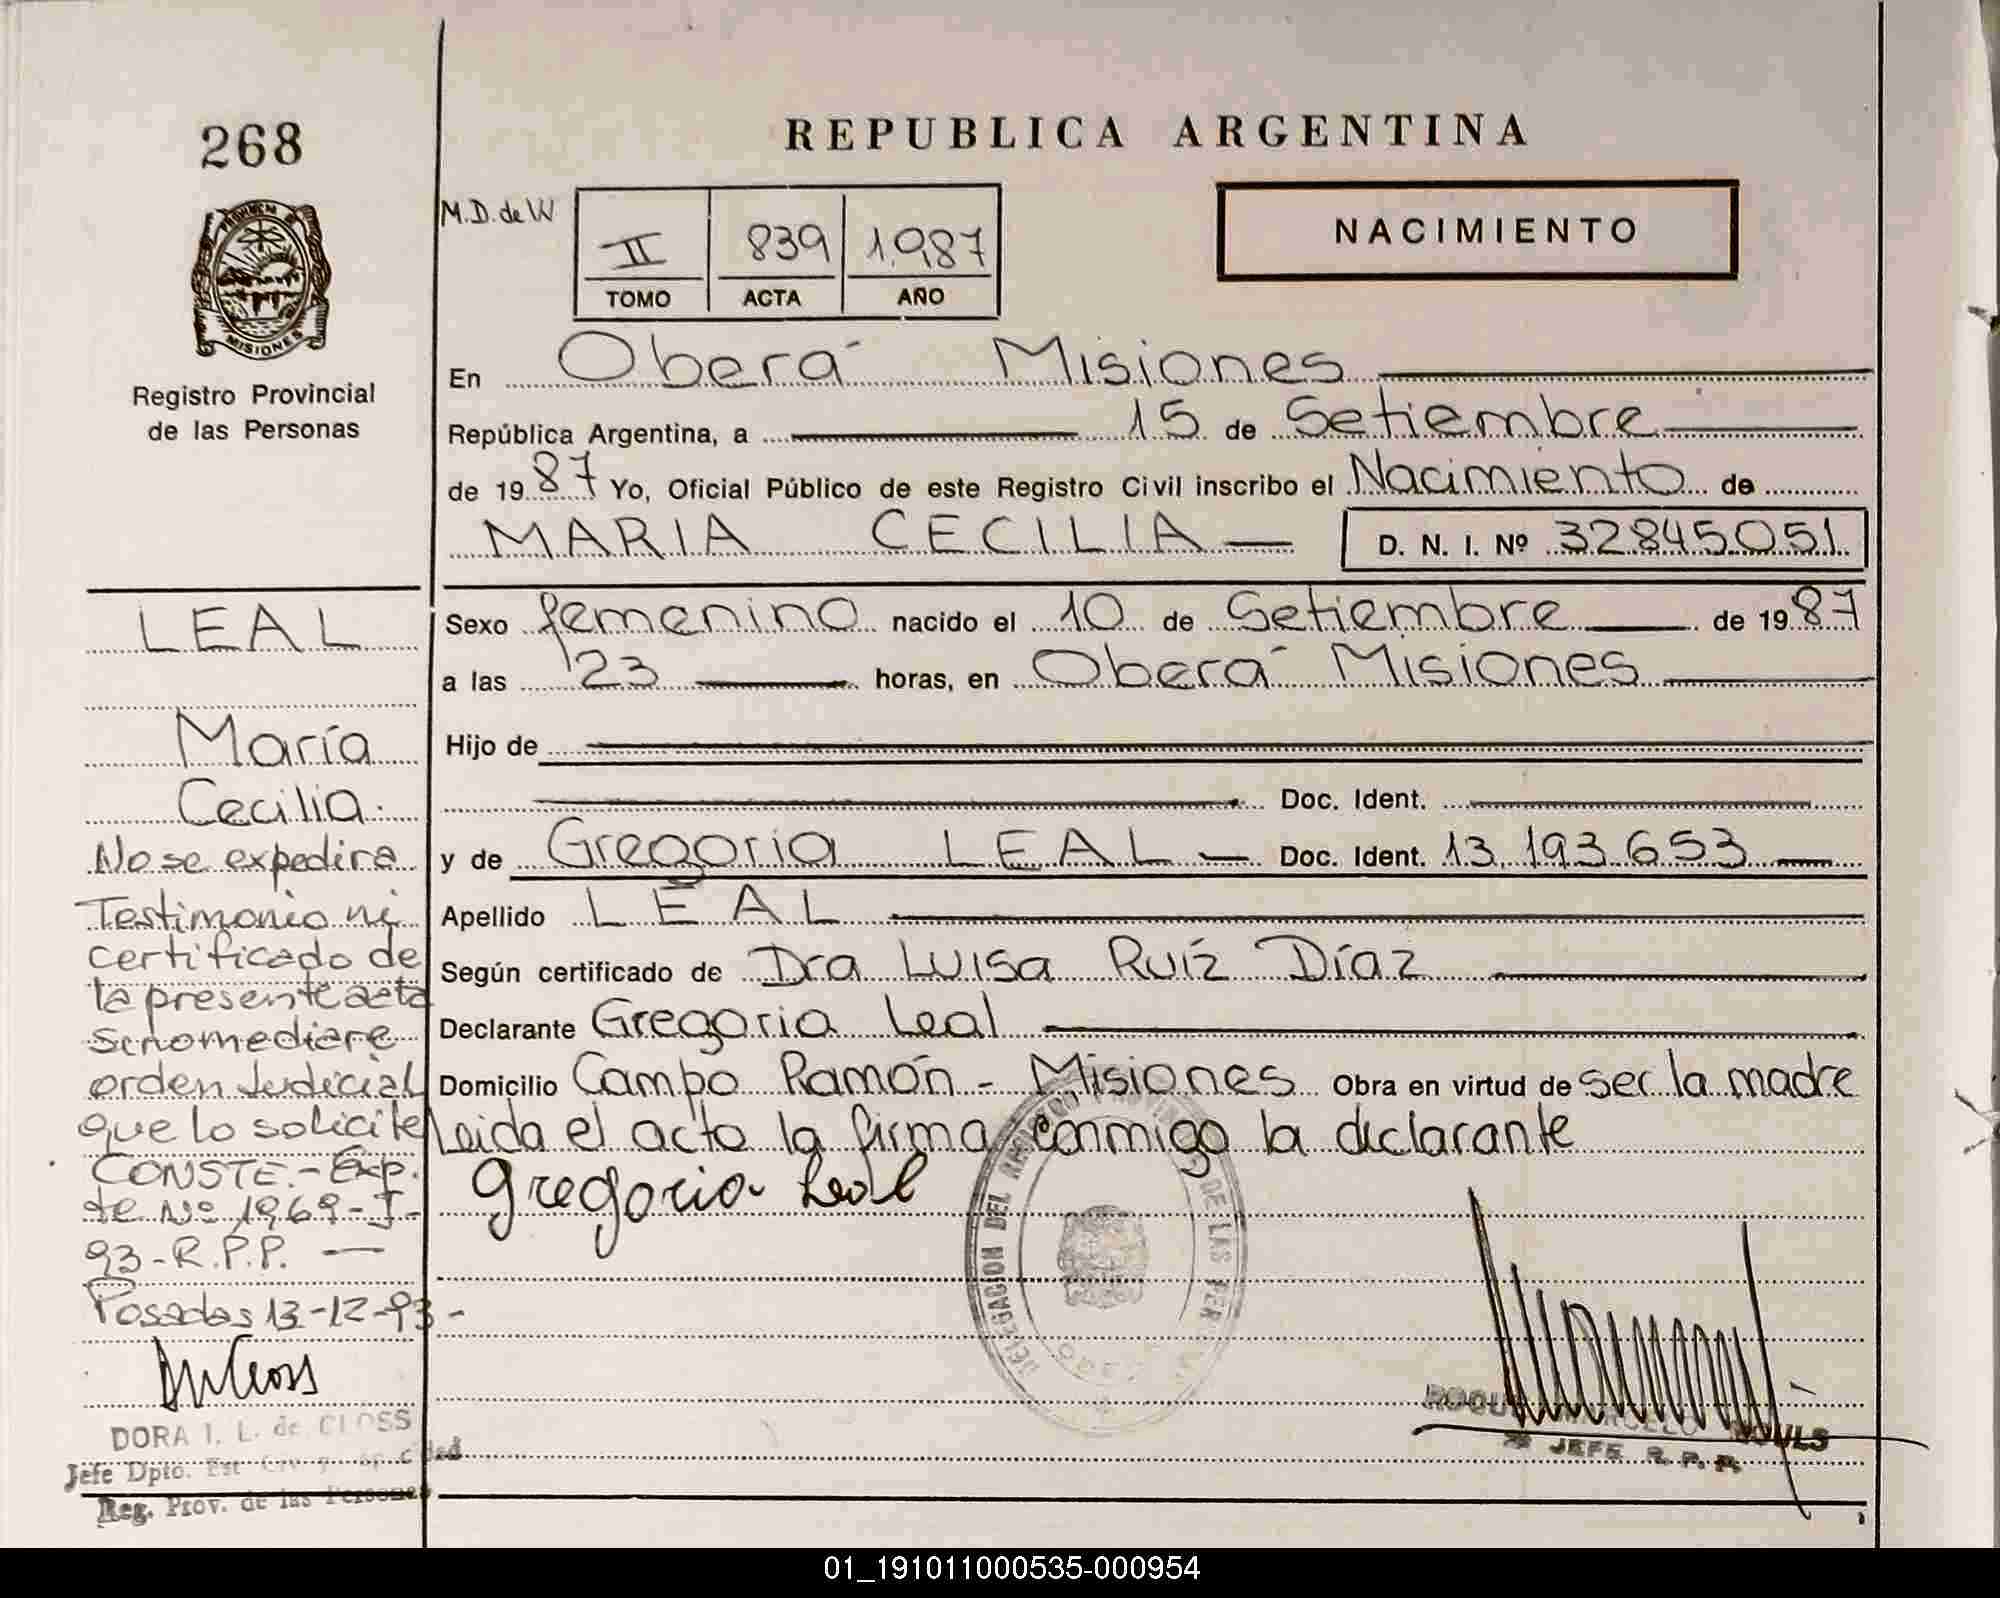 268
REPUBLICA ARGENTINA
NACIMIENTO
M.D. de W
II 839 1.987
TOMO ACTA AÑO
MISIONES
Registro Provincial
de las Personas
En Oberá Misiones
República Argentina, a 15 de Setiembre
de 1987 Yo, Oficial Público de este Registro Civil inscribo el Nacimiento de
MARIA CECILIA D. N. I. Nº 32845051
Sexo femenino nacido el 10 de Setiembre de 1987
a las 23 horas, en Oberá Misiones
Hijo de
Doc. Ident.
y de Gregoria LEAL Doc. Ident. 13.193.653
Apellido LEAL
Según certificado de Dra Luisa Ruíz Díaz
Declarante Gregoria Leal
Domicilio Campo Ramón - Misiones Obra en virtud de ser la madre
Leida el acta la firma conmigo la declarante
Gregoria Leal
DELEGACION DEL REGISTRO PROVINCIAL DE LAS PER
ROQUE
JEFE R. P. P.
LEAL
María
Cecilia.
No se expedira
Testimonio ni
certificado de
la presente acta
si no mediare
orden Judicial
que lo solicite
CONSTE.- Exp.
te Nº 1969-I-
93-R.P.P. —
Posadas 13-12-93-
DORA I. L. de CLOSS
Jefe Dpto. Est Civ y
Reg. Prov. de las Personas
01_191011000535-000954